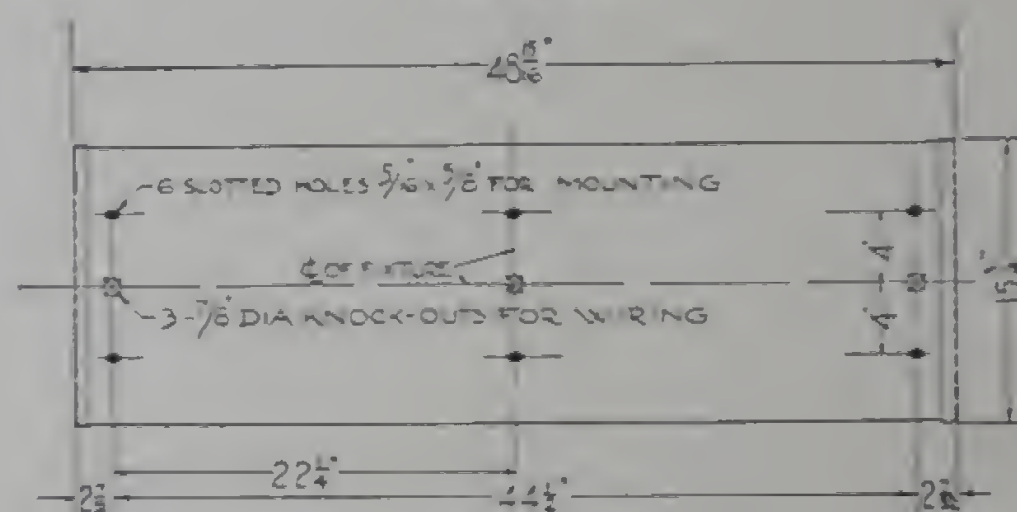 48 15/16"
6 SLOTTED HOLES 5/16" x 5/8" FOR MOUNTING
4"
℄ OF FIXTURE
3-7/8" DIA KNOCK-OUTS FOR WIRING
4"
22 1/4"
2 7/32
44 1/2"
2 7/32